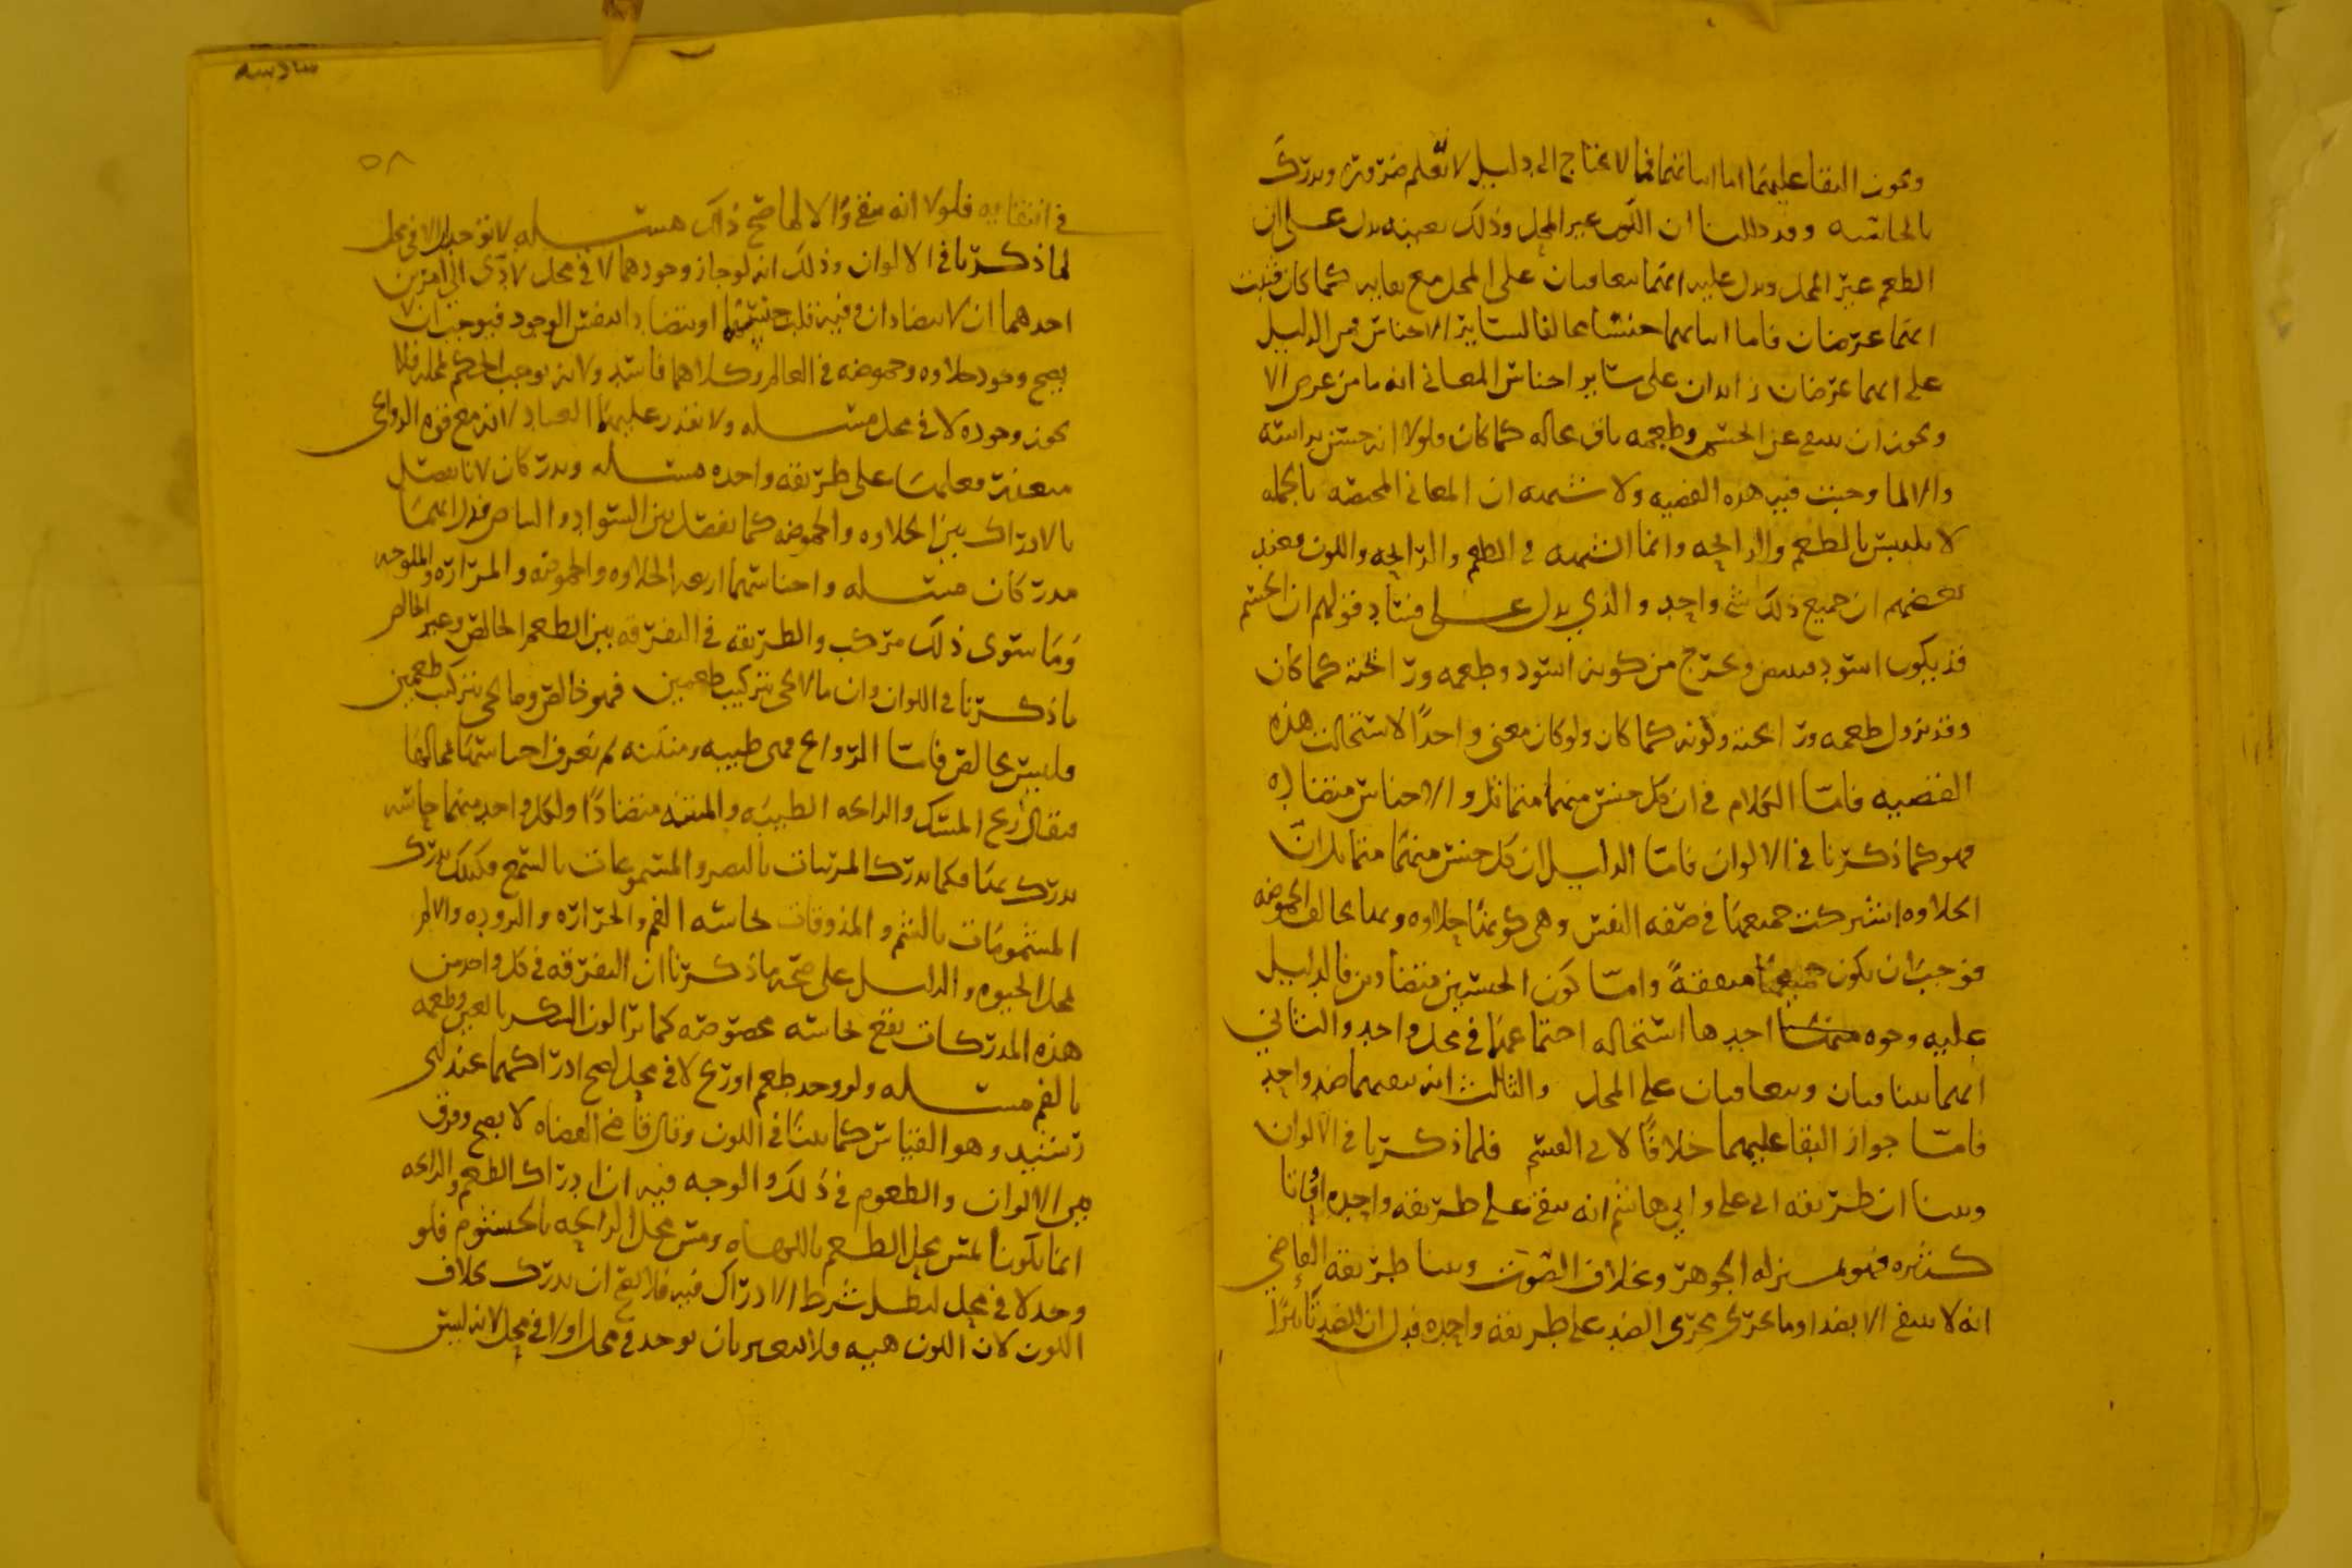 ويجوز البقا عليهما اما اثباتهما فما لا يحتاج الى دليل لانه يعلم ضرورة ويدرك
بالحاسه وقد دللنا ان اللون غير المحل وذلك بعينه يدل على ان
الطعم غير المحل ويدل عليه انهما يتعاقبان على المحل مع بقايه كما كان فثبت
انهما عرضان فاما اثباتهما جنسا مخالفا لساير الاجناس فمر الدليل
على انهما عرضان زايدان على ساير اجناس المعاني انه ما من عرض الا
ويجوز ان ينتفي عن الجسم وطعمه باق بحاله كما كان ولولا انه جنس براسه
والا لما وجبت فيه هذه القضيه ولا شبهه ان المعاني المختصه بالجمله
لا يلتبس بالطعم والرايحه وانما الشبهه في الطعم والرايحه واللون فعند
بعضهم ان جميع ذلك شي واحد والذي يدل على فساد قولهم ان الجسم
قد يكون اسود فيبيض ويخرج من كونه اسود وطعمه ورائحته كما كان
وقد يزول طعمه ورايحته ولونه كما كان ولو كان معنى واحدًا لاستحالت هذه
القضيه فامّا الكلام في ان كل جنس منهما متماثل والاجناس متضاده
فهو كما ذكرنا في الالوان فامّا الدليل ان كل جنس منهما متماثل ان
الحلاوه اشتركت جميعها في صفه النفس وهي كونها حلاوه وبها يخالف الحموضه
فوجب ان تكون جميعها متفقةً وامّا كون الجنسين متضادين فالدليل
عليه وجوه احدها استحاله اجتماعهما في محل واحد والثاني
انهما يتنافيان ويتعاقبان على المحل والثالث انه ينفيهما ضد واحد
فامّا جواز البقا عليهما خلافًا لابي القسم فلما ذكرنا في الالوان
وبينا ان طريقه ابي علي وابي هاشم انه يبقى على طريقه واحده اوقاتا
كثيره فهو بمنزله الجوهر وبخلاف الصوت وبينا طريقه القاضي
انه لا ينتفي الا بضد او ما يجري مجرى الضد على طريقه واحده فدل ان للضد تاثيرًا
في انتفايه فلولا انه يبقى والا لما صح ذلك مسله لا توجد الا في محل
لما ذكرنا في الالوان وذلك انه لو جاز وجودهما لا في محل لادى الى امرين
احدهما ان لا يتضادان وفيه قلب جنسهما او يتضادا بنفس الوجود فيوجب ان لا
يصح وجود حلاوه وحموضه في العالم وكلاهما فاسد ولانه يوجب الحكم لمحله فلا
يجوز وجوده لا في محل مسله ولا يقدر عليهما العباد لانه مع قوه الدواعي
يتعذر فعلهما على طريقه واحده مسله ويدركان لانا نفصل
بالادراك بين الحلاوه والحموضه كما نفصل بين السواد والبياض فدل انهما
مدركان مسله واجناسهما اربعه الحلاوه والحموضه والمراره والملوحه
وَمَا سوى ذلك مركب والطريقه في التفرقه بين الطعم الخالص وغير الخالص
ما ذكرنا في اللوان وان ما لا يجي بتركيب طعمين فهو خالص وما يجي بتركيب طعمين
فليس بخالص فامّا الروايح فهي طيبه ومنتنه لم تعرف اجناسها فما لها
فيقال ريح المسك والرايحه الطيبه والمنتنه متضادًا ولكل واحد منهما حاسه
يدرك بها فكما يدرك المرئيات بالبصر والمسموعات بالسمع فكذلك يدرك
المشمومات بالشم والمذوقات بحاسه الفم والحراره والبروده والالم
بمحل الحيوه والدليل على صحه ما ذكرنا ان التفرقه في كل واحد من
هذه المدركات تقع بحاسه مخصوصه كما يرا لون السكر بالعين وطعمه
بالفم مسله ولو وجد طعم او ريح لا في محل لصح ادراكهما عند ابي
رشيد وهو القياس كما بينا في اللون وقال قاضي القضاه لا يصح وفرق
بين الالوان والطعوم في ذلك والوجه فيه ان ادراك الطعم والرايحه
انما يكون لمس محل الطعم باللهاه ومس محل الرايحه بالخيشوم فلو
وجد لا في محل لبطل شرط الادراك فيه فلا يصح ان يدرك بخلاف
اللون لان اللون هيئه فلا يتغير بان يوجد في محل او لا في محل لانه ليس